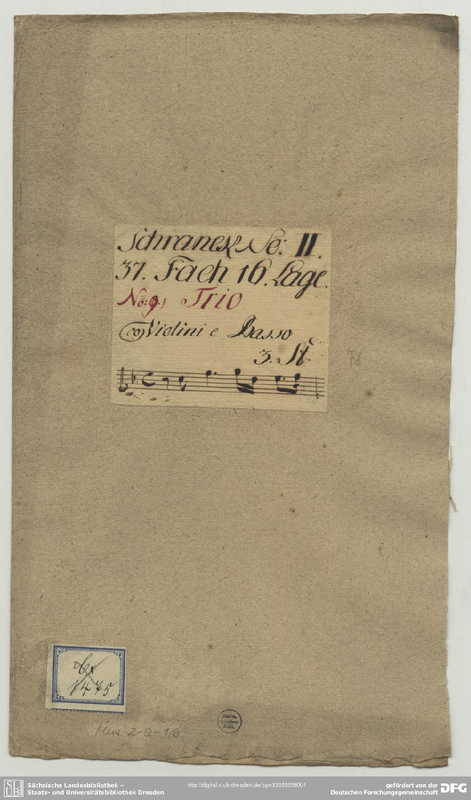 Schranck No: II.
37. Fach 16. Lage.
No: 9.) Trio
co Violini e Basso
3. St.
Mus. 2-Q-
Sächsische Landesbibliothek –
Staats- und Universitätsbibliothek Dresden
http://digital.slub-dresden.de/
gefördert von der
Deutschen Forschungsgemeinschaft
DFG